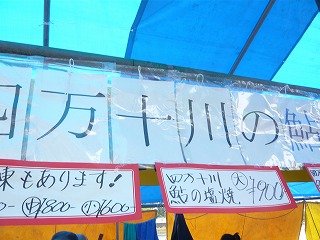 四万十川の鮎
凍もあります!
中800- 小600
四万十川 大
鮎の塩焼 ¥900